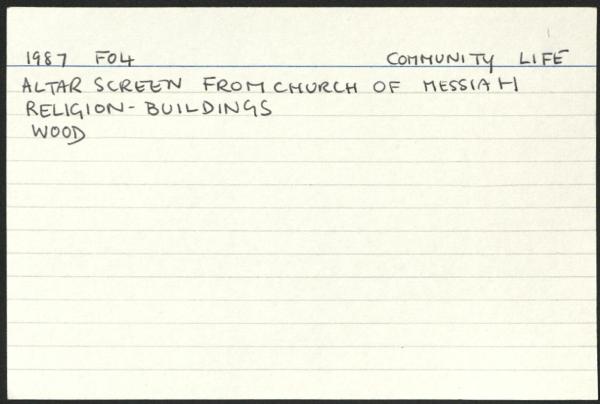 1987 F04 COMMUNITY LIFE
ALTAR SCREEN FROM CHURCH OF MESSIAH
RELIGION - BUILDINGS
WOOD